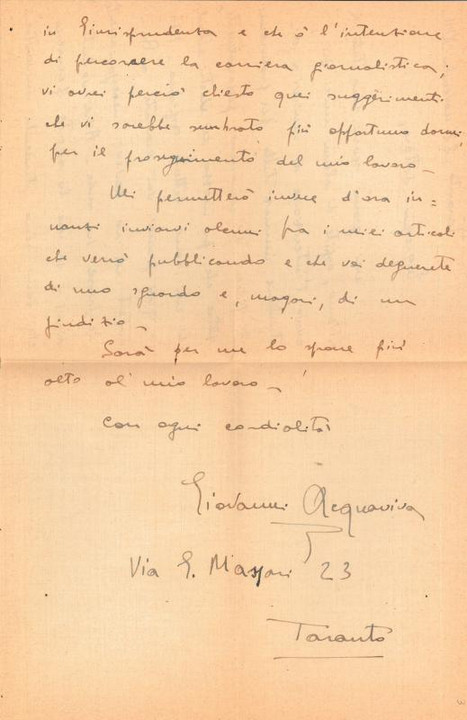 in Giurisprudenza e che ò l'intenzione
di percorrere la carriera giornalistica;
vi avrei perciò chiesto quei suggerimenti
che vi sarebbe sembrato più opportuno darmi,
per il proseguimento del mio lavoro_
Mi permetterò invece d'ora in=
nanzi inviarvi alcuni fra i miei articoli
che verrò pubblicando e che voi degnerete
di uno sguardo e, magari, di un
giudizio_
Sarà per me lo sprone più
alto al mio lavoro_
Con ogni cordialità
Giovanni Acquaviva
Via G. Massari 23
Taranto